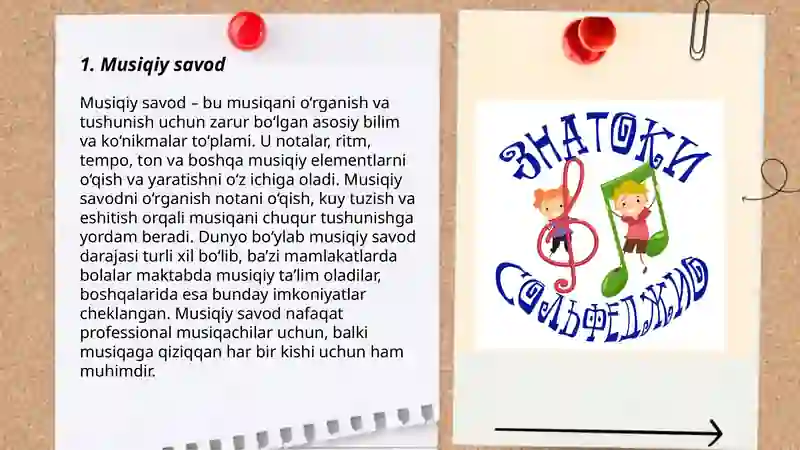 1. Musiqiy savod
Musiqiy savod – bu musiqani oʻrganish va
tushunish uchun zarur boʻlgan asosiy bilim
va koʻnikmalar toʻplami. U notalar, ritm,
tempo, ton va boshqa musiqiy elementlarni
oʻqish va yaratishni oʻz ichiga oladi. Musiqiy
savodni oʻrganish notani oʻqish, kuy tuzish va
eshitish orqali musiqani chuqur tushunishga
yordam beradi. Dunyo boʻylab musiqiy savod
darajasi turli xil boʻlib, baʼzi mamlakatlarda
bolalar maktabda musiqiy taʼlim oladilar,
boshqalarida esa bunday imkoniyatlar
cheklangan. Musiqiy savod nafaqat
professional musiqachilar uchun, balki
musiqaga qiziqqan har bir kishi uchun ham
muhimdir.
ЗНАТОКИ
СОЛЬФЕДЖИО